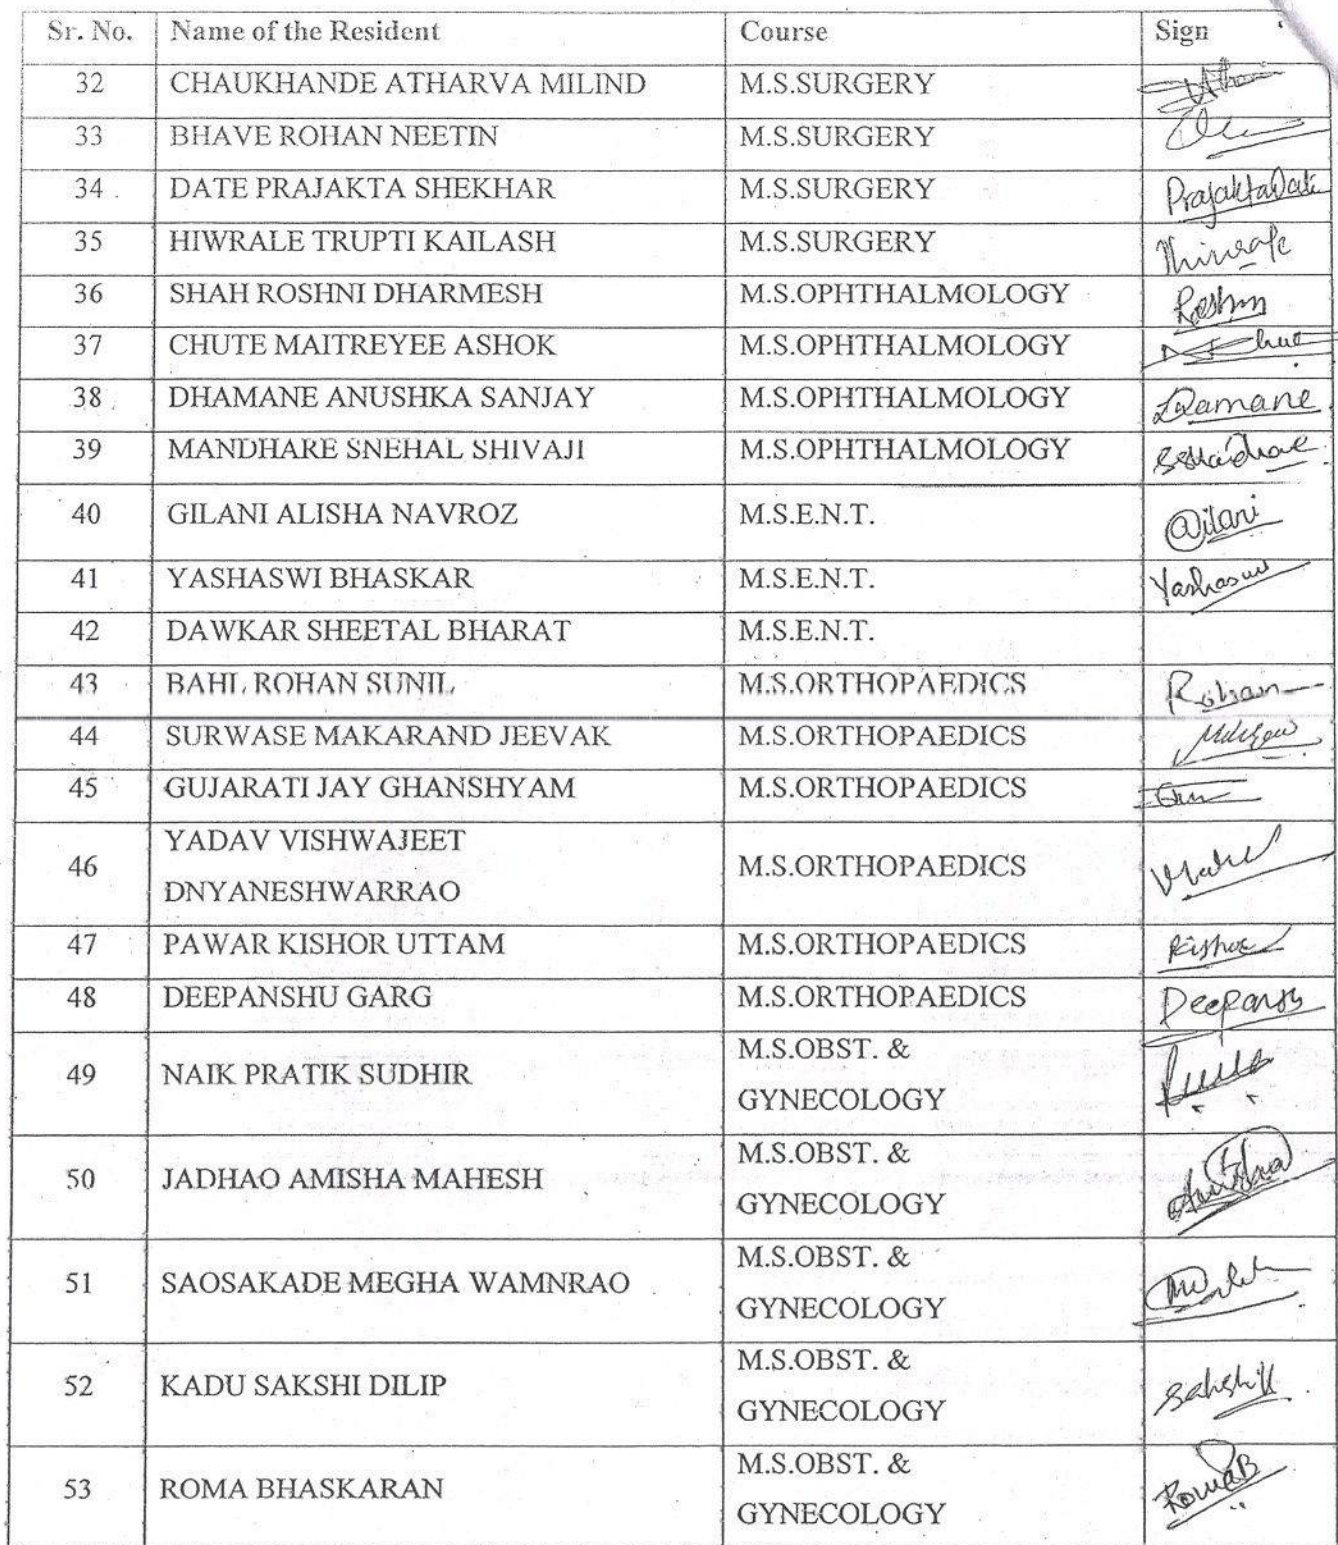 Sr. No. Name of the Resident Course Sign
32 CHAUKHANDE ATHARVA MILIND M.S.SURGERY
33 BHAVE ROHAN NEETIN M.S.SURGERY
34 DATE PRAJAKTA SHEKHAR M.S.SURGERY PrajaktaDate
35 HIWRALE TRUPTI KAILASH M.S.SURGERY
36 SHAH ROSHNI DHARMESH M.S.OPHTHALMOLOGY
37 CHUTE MAITREYEE ASHOK M.S.OPHTHALMOLOGY
38 DHAMANE ANUSHKA SANJAY M.S.OPHTHALMOLOGY
39 MANDHARE SNEHAL SHIVAJI M.S.OPHTHALMOLOGY
40 GILANI ALISHA NAVROZ M.S.E.N.T. Gilani
41 YASHASWI BHASKAR M.S.E.N.T. Yashaswi
42 DAWKAR SHEETAL BHARAT M.S.E.N.T.
43 BAHL ROHAN SUNIL M.S.ORTHOPAEDICS Rohan
44 SURWASE MAKARAND JEEVAK M.S.ORTHOPAEDICS
45 GUJARATI JAY GHANSHYAM M.S.ORTHOPAEDICS
46 YADAV VISHWAJEET
DNYANESHWARRAO M.S.ORTHOPAEDICS
47 PAWAR KISHOR UTTAM M.S.ORTHOPAEDICS Kishor
48 DEEPANSHU GARG M.S.ORTHOPAEDICS
49 NAIK PRATIK SUDHIR M.S.OBST. &
GYNECOLOGY
50 JADHAO AMISHA MAHESH M.S.OBST. &
GYNECOLOGY
51 SAOSAKADE MEGHA WAMNRAO M.S.OBST. &
GYNECOLOGY
52 KADU SAKSHI DILIP M.S.OBST. &
GYNECOLOGY
53 ROMA BHASKARAN M.S.OBST. &
GYNECOLOGY RomaB